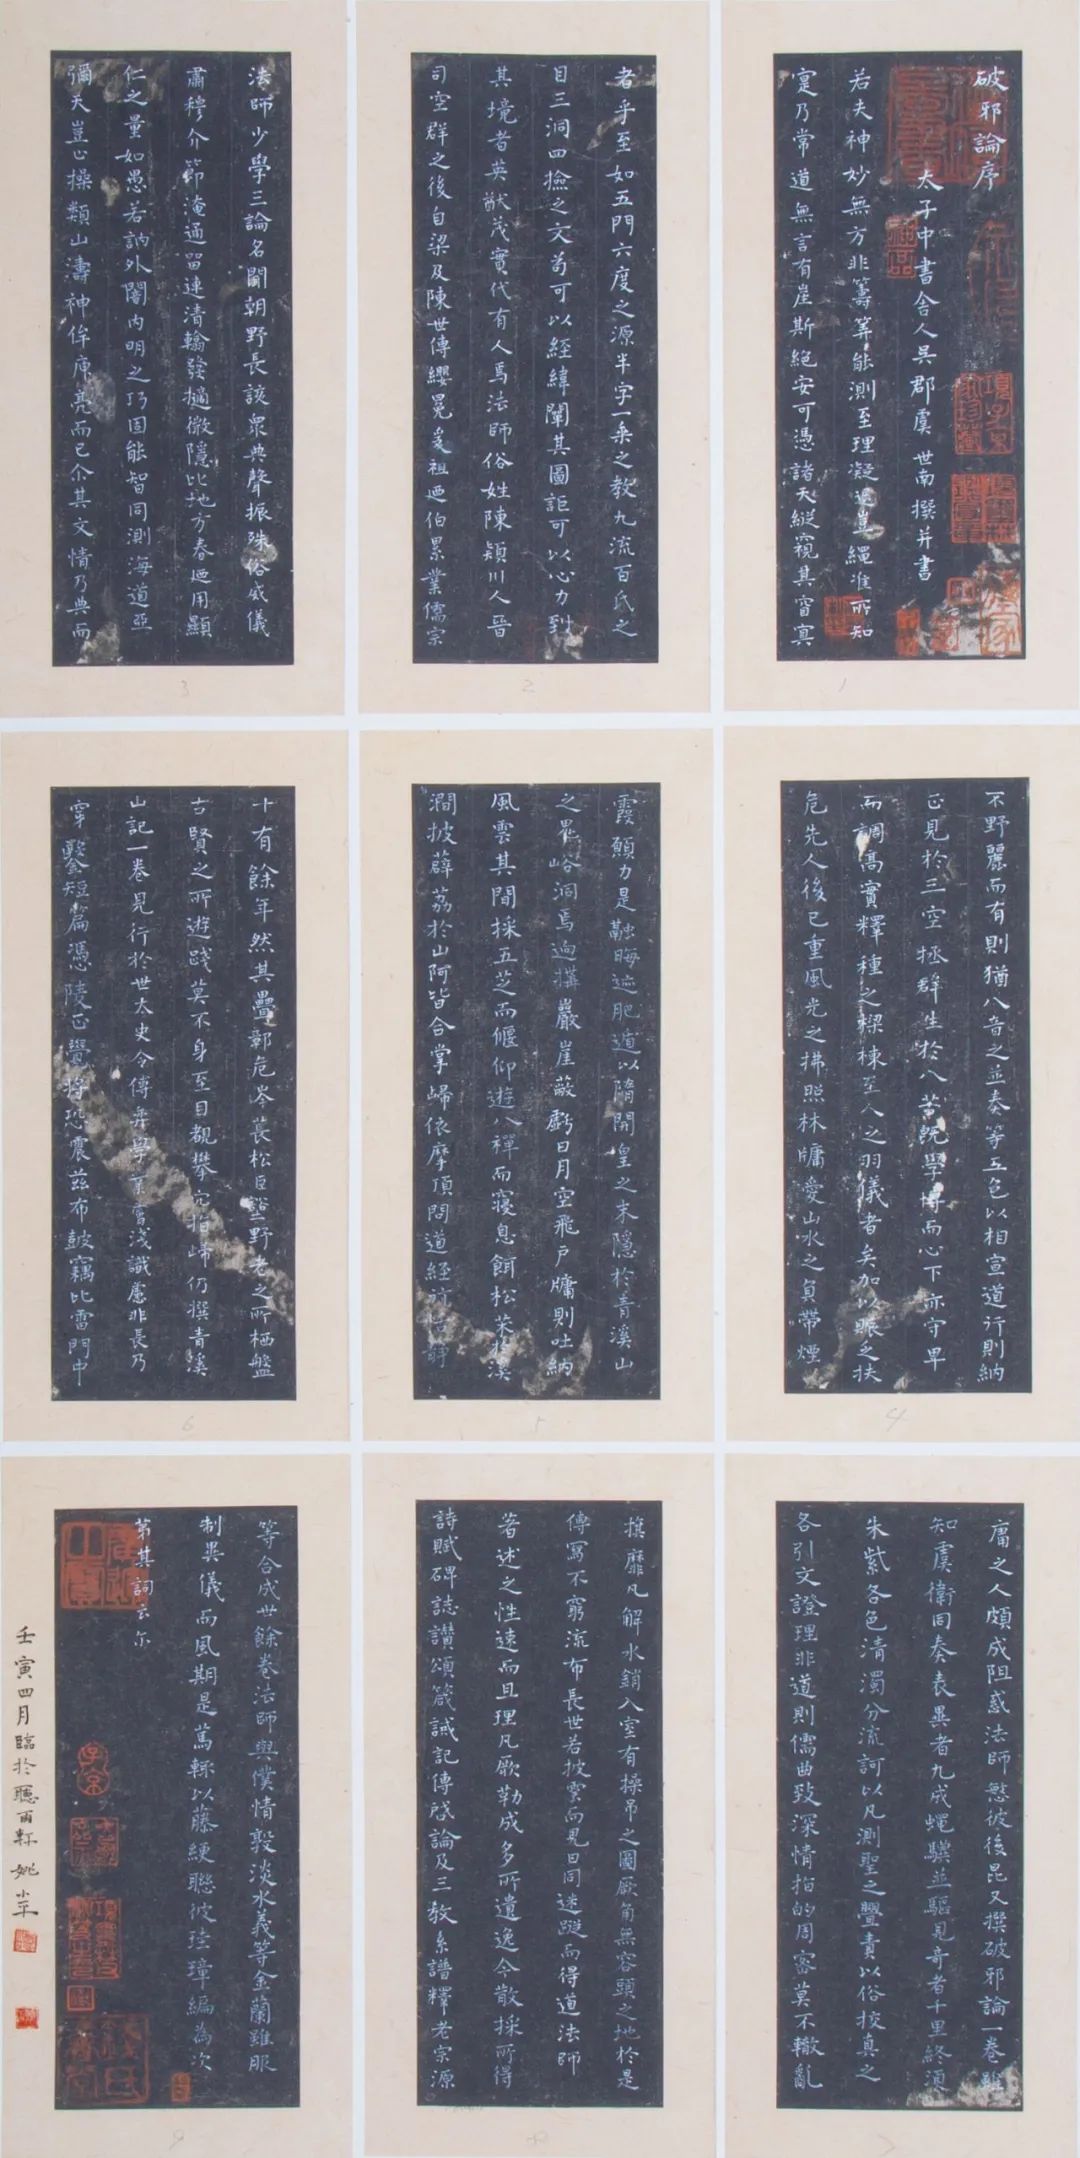 破邪論序
太子中書舍人吳郡虞世南撰并書
若夫神妙無方非籌筭能測至理凝邈豈繩准所知
寔乃常道無言有崖斯絕安可憑諸天縱窺其窅寞
1
者乎至如五門六度之源半字一乘之教九流百氏之
目三洞四撿之文苟可以經緯闡其圖詎可以心力到
其境者英猷茂實代有人焉法師俗姓陳潁川人晉
司空群之後自梁及陳世傳纓冕爰祖迺伯累業儒宗
2
法師少學三論名聞朝野長該眾典聲振殊俗威儀
肅穆介節淹通留連清翰發擿微隱比地方春迺用顯
仁之量如愚若訥外闇內明之巧固能智同測海道亞
彌天豈止操類山濤神侔庾亮而已余其文情乃典而
3
不野麗而有則猶八音之並奏等五色以相宣道行則納
正見於三空拯群生於八苦既學博而心下亦守卑
而調高實釋種之樑棟至人之羽儀者矣加以賑乏扶
危先人後已重風光之拂照林牖愛山水之負帶煙
4
霞願力是融晦迹肥遁以隋開皇之末隱於青溪山
之鬼峪洞焉迥構巖崖蔽虧日月空飛戶牖則吐納
風雲其間採五芝而偃仰遊八禪而寢息餌松茱於溪
澗披薜荔於山阿皆合掌歸依摩頂問道經
5
十有餘年然其疊鄣危岑長松巨壑野老之所栖盤
古賢之所遊踐莫不身至目覩攀穴指歸仍撰青溪
山記一卷見行於世太史令傅弈學業膚淺識慮非長乃
穿鑿短篇憑陵正覺將恐震茲布鼓竊比雷門中
6
庸之人頗成阻惑法師慜彼後昆又撰破邪論一卷雖
知虞衛同奏表異者九成蠅驥並驅見奇者千里終須
朱紫各色清濁分流訶以凡測聖之舋責以俗挍真之
各引文證理非道則儒曲致深情指的周密莫不轍亂
7
旗靡凡解水銷入室有操吊之圖厥角無容頭之地於是
傳寫不窮流布長世若披雲而見日同迷蹤而得道法師
著述之性速而且理凡厥勒成多所遺逸今散採所得
詩賦碑誌讚頌箴誡記傳啟論及三教系譜釋老宗源
8
等合成卅餘卷法師與僕情敦淡水義等金蘭雖服
制異儀而風期是篤輒以藤綆聯彼珪璋編為次
第其詞云尔
壬寅四月臨於聽雨軒 姚小平
9